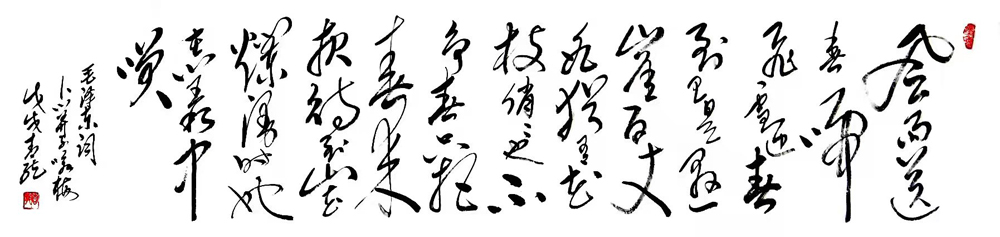 风雨送
春归
飛雪迎春
到已是悬
崖百丈
冰猶有花
枝俏俏也不
争春只把
春来
报待到山花
爛漫时她
在丛中
笑
毛泽东词
卜算子咏梅
戊戌